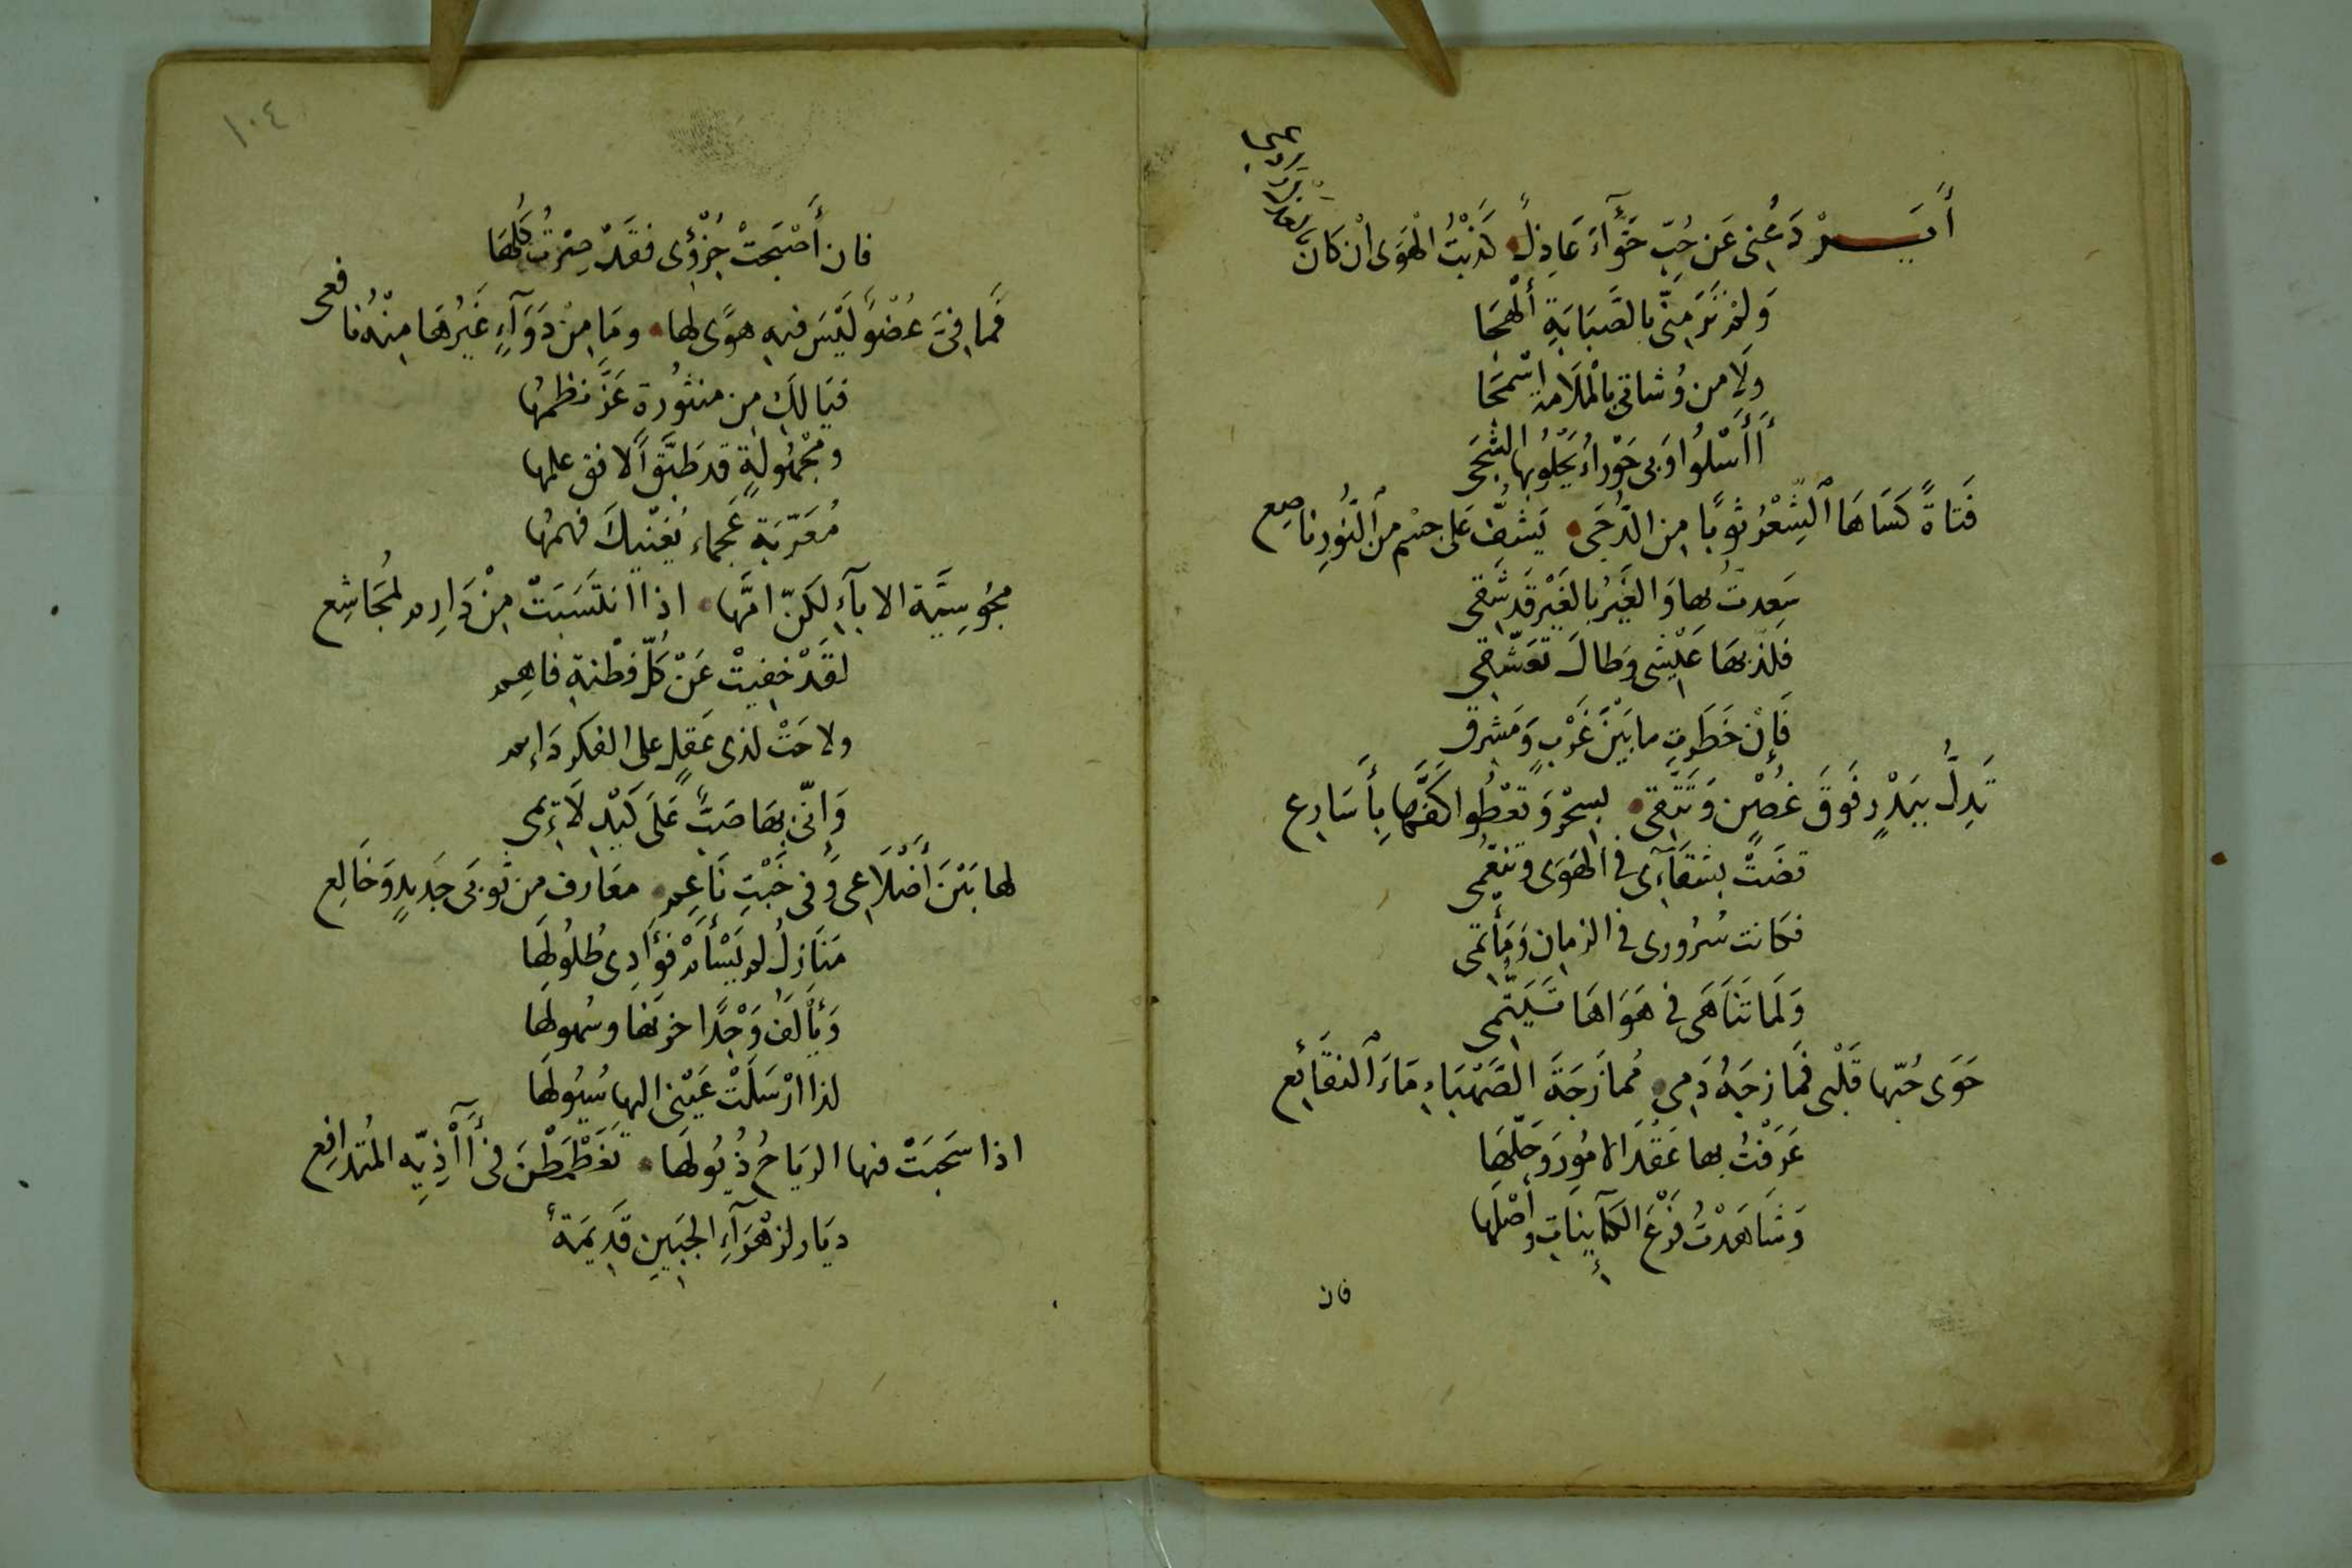 أَيَردَعُنِى عَن حُبِّ حَوَّآءَ عَاذِلٌ كَذَبْتُ الْهَوَى اْن كَانَ
وَلَمْ تَرَ مِنّى بالصَّبَابَةِ أَلْهَجَا
ولَا من وُشاتى بالْمَلَامة اسْمَجَا
أَأَسْلُوا وَبى حَوْراءُ يَحْلُو بها الشَّجَى
فَتَاةٌ كَسَاهَا الشَّعْرُ ثوبًا مِن الدُّجَى يَشفّ عَلى جسْم من النُّورِ ناصِع
سَعِدتُ بها وَالغَيْرُ بالغَيْر قَد شَقِى
فلذّ بهَا عَيْشى وَطالَ تعَشُّقِى
فَإِنْ خَطَرت ما بَيْنَ غَرْبٍ وَمَشرِق
تَدِلُّ بِبَدْرٍ فَوقَ غُصْنٍ وَتَتَّقى بسِحْرٍ وَتعْطُوا كفّها بِأَسَارِع
قضَتْ بشقَآءى فى الهَوَى وتنعُّمى
فكانت سُرُورى فى الزمان وَمَأْتمى
وَلَما تنَاهَى فى هَوَاهَا تَيَتُّمى
حَوَى حُبّها قَلْبى فمَازجَهُ دَمِى مُمازَجَةَ الصَّهْبَاءِ مَاءَ الْنقَائِع
عَرَفْتُ بها عَقْدَ الامُورَ وَحَلّهَا
وَشَاهَدْتُ فَرْعَ الكَآئِنَاتِ وأَصْلَها
فان
١٠٤
فان أَصْبَحتْ جُزْؤى فقَدْ صِرْتُ كُلّهَا
فَما فىَ عُضْوٌ لَيْسَ فيهِ هوًى لها ومَا مِنْ دَوَآءٍ غَيْرُهَا مِنْهُ نافعى
فيَالَكِ مِن منثورة عَزَّ نظمهُا
ومَجْهُولةٍ قد طبَّقَ الافق علمها
مُعَرّبَة عَجماء يُغنيكَ فهمهُا
مجُوسِيَّة الابآءِ لكنّ امّها اذا انتَسَبَتْ مِنْ دَارِم لمُجَاشِع
لقَدْ خفِيتْ عَنْ كُلّ فطْنة فاهِم
ولاحَتْ لذى عَقلٍ على الفكر دَاىم
وَاِنّى بهَا صَبٌّ عَلَى كَيْدِ لَائمى
لها بَيْنَ أَضْلَاعِى وَفى خَبْتِ نَاعِم معَارف من ثوبَى جَدِيدٍ وَخَالِع
مَنَازِلُ لم يَسْأَمْ فؤَادِى طُلُولهَا
وَيَأْلَفُ وَجْدًا حزنهَا وسُهولهَا
لذا ارْسَلَتْ عَيْنى اليها سُيُولهَا
اذا سَحَبَتْ فيها الرِيَاحُ ذُيُولهَا تغَطْمَطْنَ فى آذِيّه المُتدافِع
ديَار لزهْرَآءِ الجَبِينِ قَدِيمَة